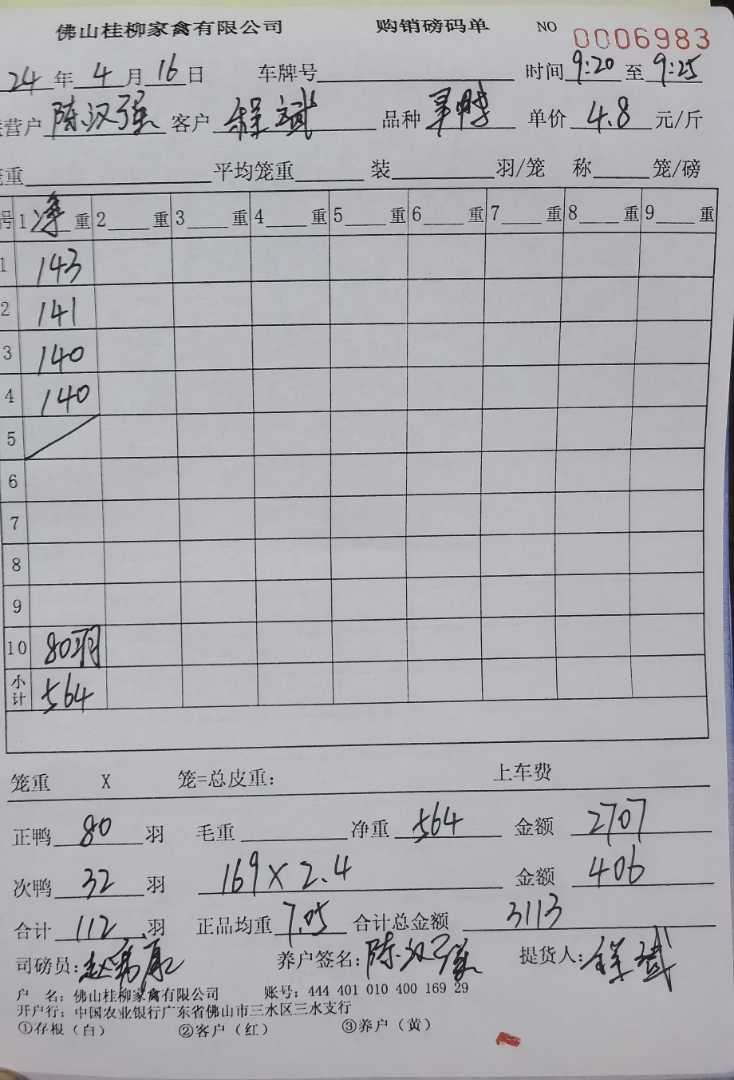 佛山桂柳家禽有限公司 购销磅码单 NO 0006983
24 年 4 月 16 日 车牌号 时间 9:20 至 9:25
营户 陈汉强 客户 程斌 品种 单价 4.8 元/斤
笼重 平均笼重 装 羽/笼 称 笼/磅
号 1 净 重 2 重 3 重 4 重 5 重 6 重 7 重 8 重 9 重
1 143
2 141
3 140
4 140
5
6
7
8
9
10 80羽
小计 564
笼重 X 笼=总皮重: 上车费
正鸭 80 羽 毛重 净重 564 金额 2707
次鸭 32 羽 169×2.4 金额 406
合计 112 羽 正品均重 7.05 合计总金额 3113
司磅员: 养户签名: 陈汉强 提货人: 程斌
户 名: 佛山桂柳家禽有限公司 账号: 444 401 010 400 169 29
开户行: 中国农业银行广东省佛山市三水区三水支行
①存根(白) ②客户(红) ③养户(黄)